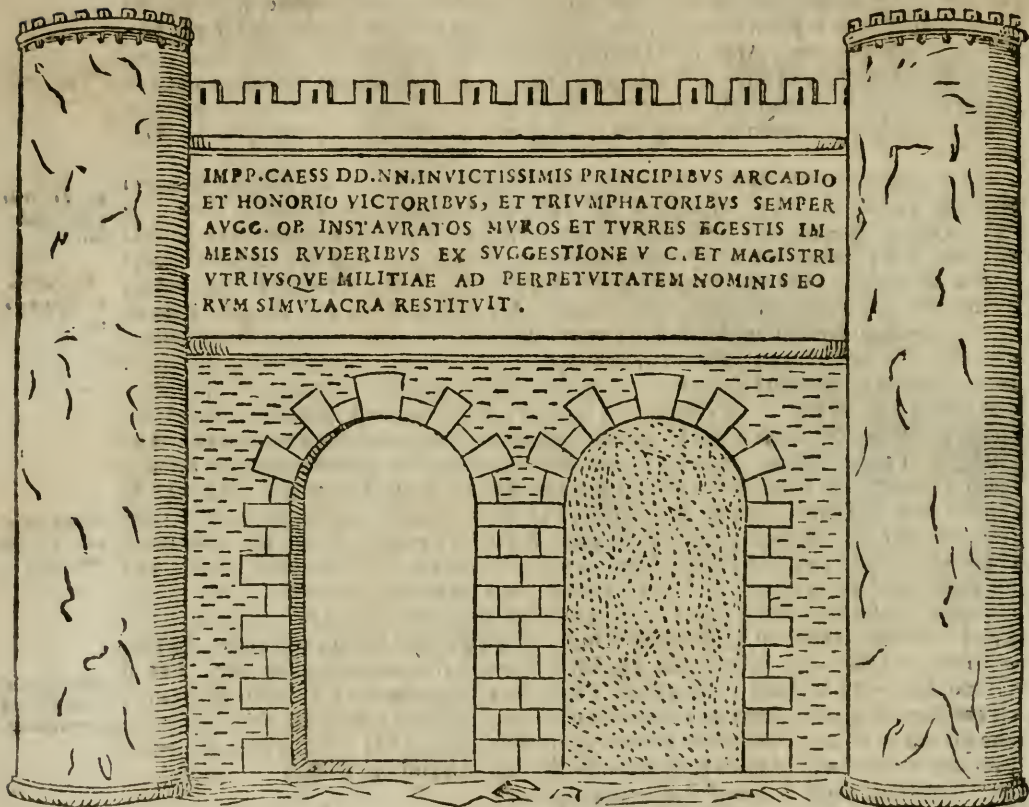 IMPP.CAESS DD.NN.INVICTISSIMIS PRINCIPIBVS ARCADIO
ET HONORIO VICTORIBVS, ET TRIVMPHATORIBVS SEMPER
AVGG. OB INSTAVRATOS MVROS ET TVRRES EGESTIS IM
MENSIS RVDERIBVS EX SVGGESTIONE V C. ET MAGISTRI
VTRIVSQVE MILITIAE AD PERPETVITATEM NOMINIS EO
RVM SIMVLACRA RESTITVIT.